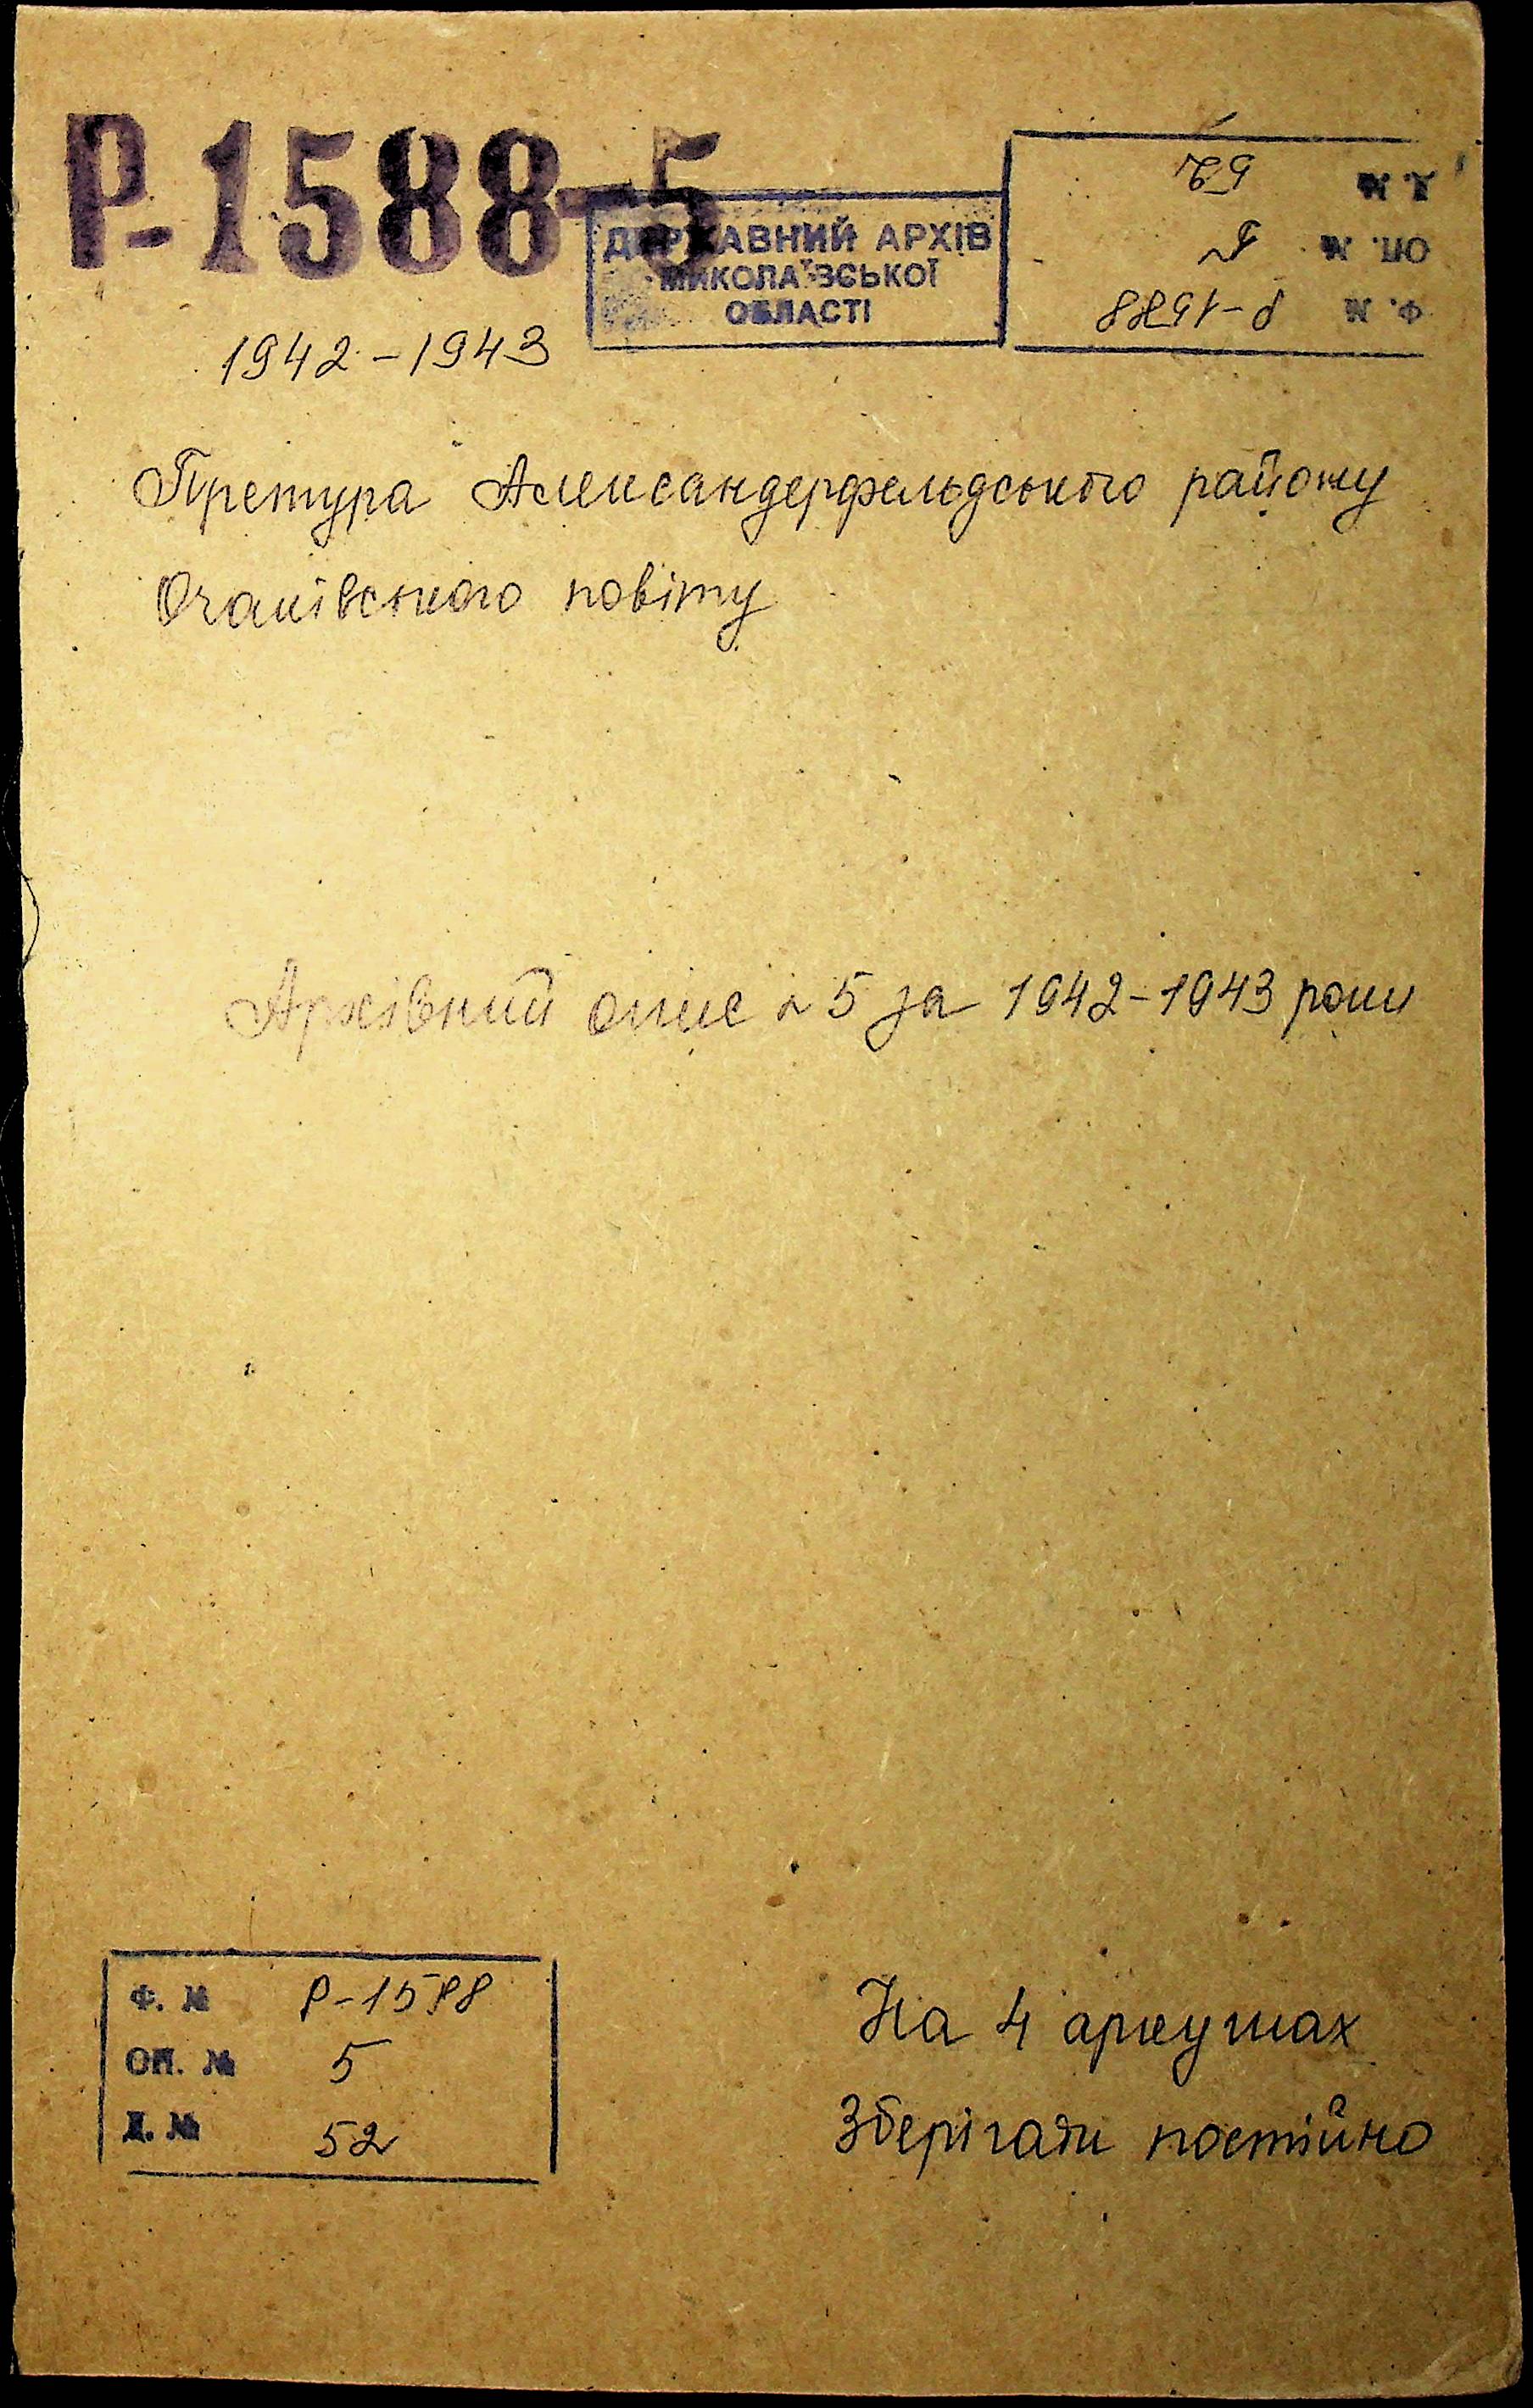 Р-1588-5
ДЕРЖАВНИЙ АРХІВ
МИКОЛАЇВСЬКОЇ
ОБЛАСТІ
Ф. № Р-1588
ОП. № 5
Д. № 52
1942-1943
Претура Александерфельдського району
Очаківського повіту
Архівний опис № 5 за 1942-1943 роки
Ф. № Р-1588
ОП. № 5
Д. № 52
На 4 аркушах
Зберігати постійно